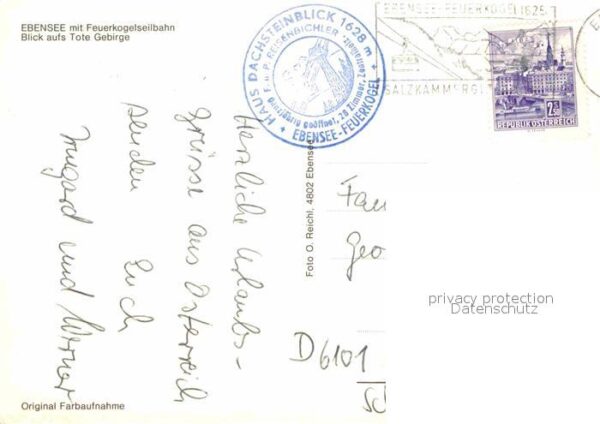 EBENSEE mit Feuerkogelseilbahn
Blick aufs Tote Gebirge
HAUS DACHSTEINBLICK 1628 m
F. u. P. REISENBICHLER
Ganzjährig geöffnet, 28 Zimmer, Zentralheiz.
EBENSEE-FEUERKOGEL
EBENSEE-FEUERKOGEL 1625
SALZKAMMERGU
2.50
REPUBLIK ÖSTERREICH
Herzliche Urlaubs-
grüsse aus Österreich
senden Euch
Irmgard und Werner
Foto O. Reichl, 4802 Ebensee
Fam
Geo
D 6101
privacy protection
Datenschutz
Original Farbaufnahme